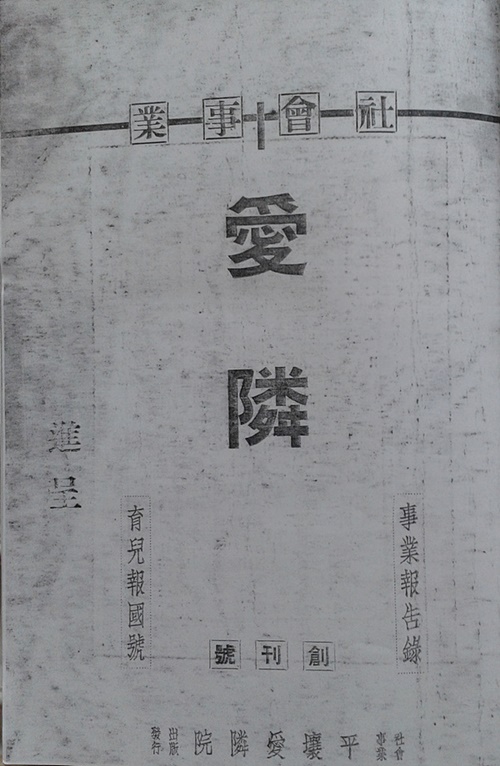 社會事業
愛隣
事業報告錄
育兒報國號
進呈
創刊號
社會事業 平壤愛隣院 出版發行